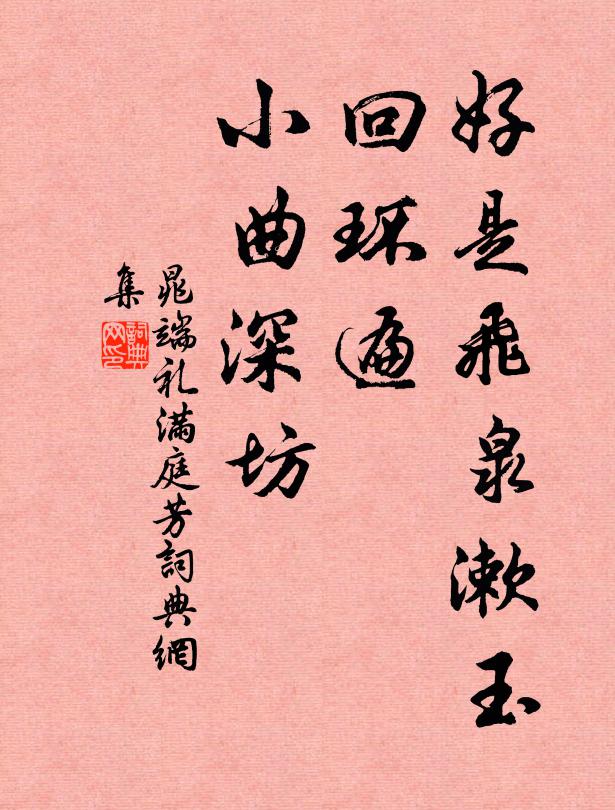 好是飛泉漱玉
回环遍
小曲深坊
晁端礼滿庭芳詞典網
集
詞典网印